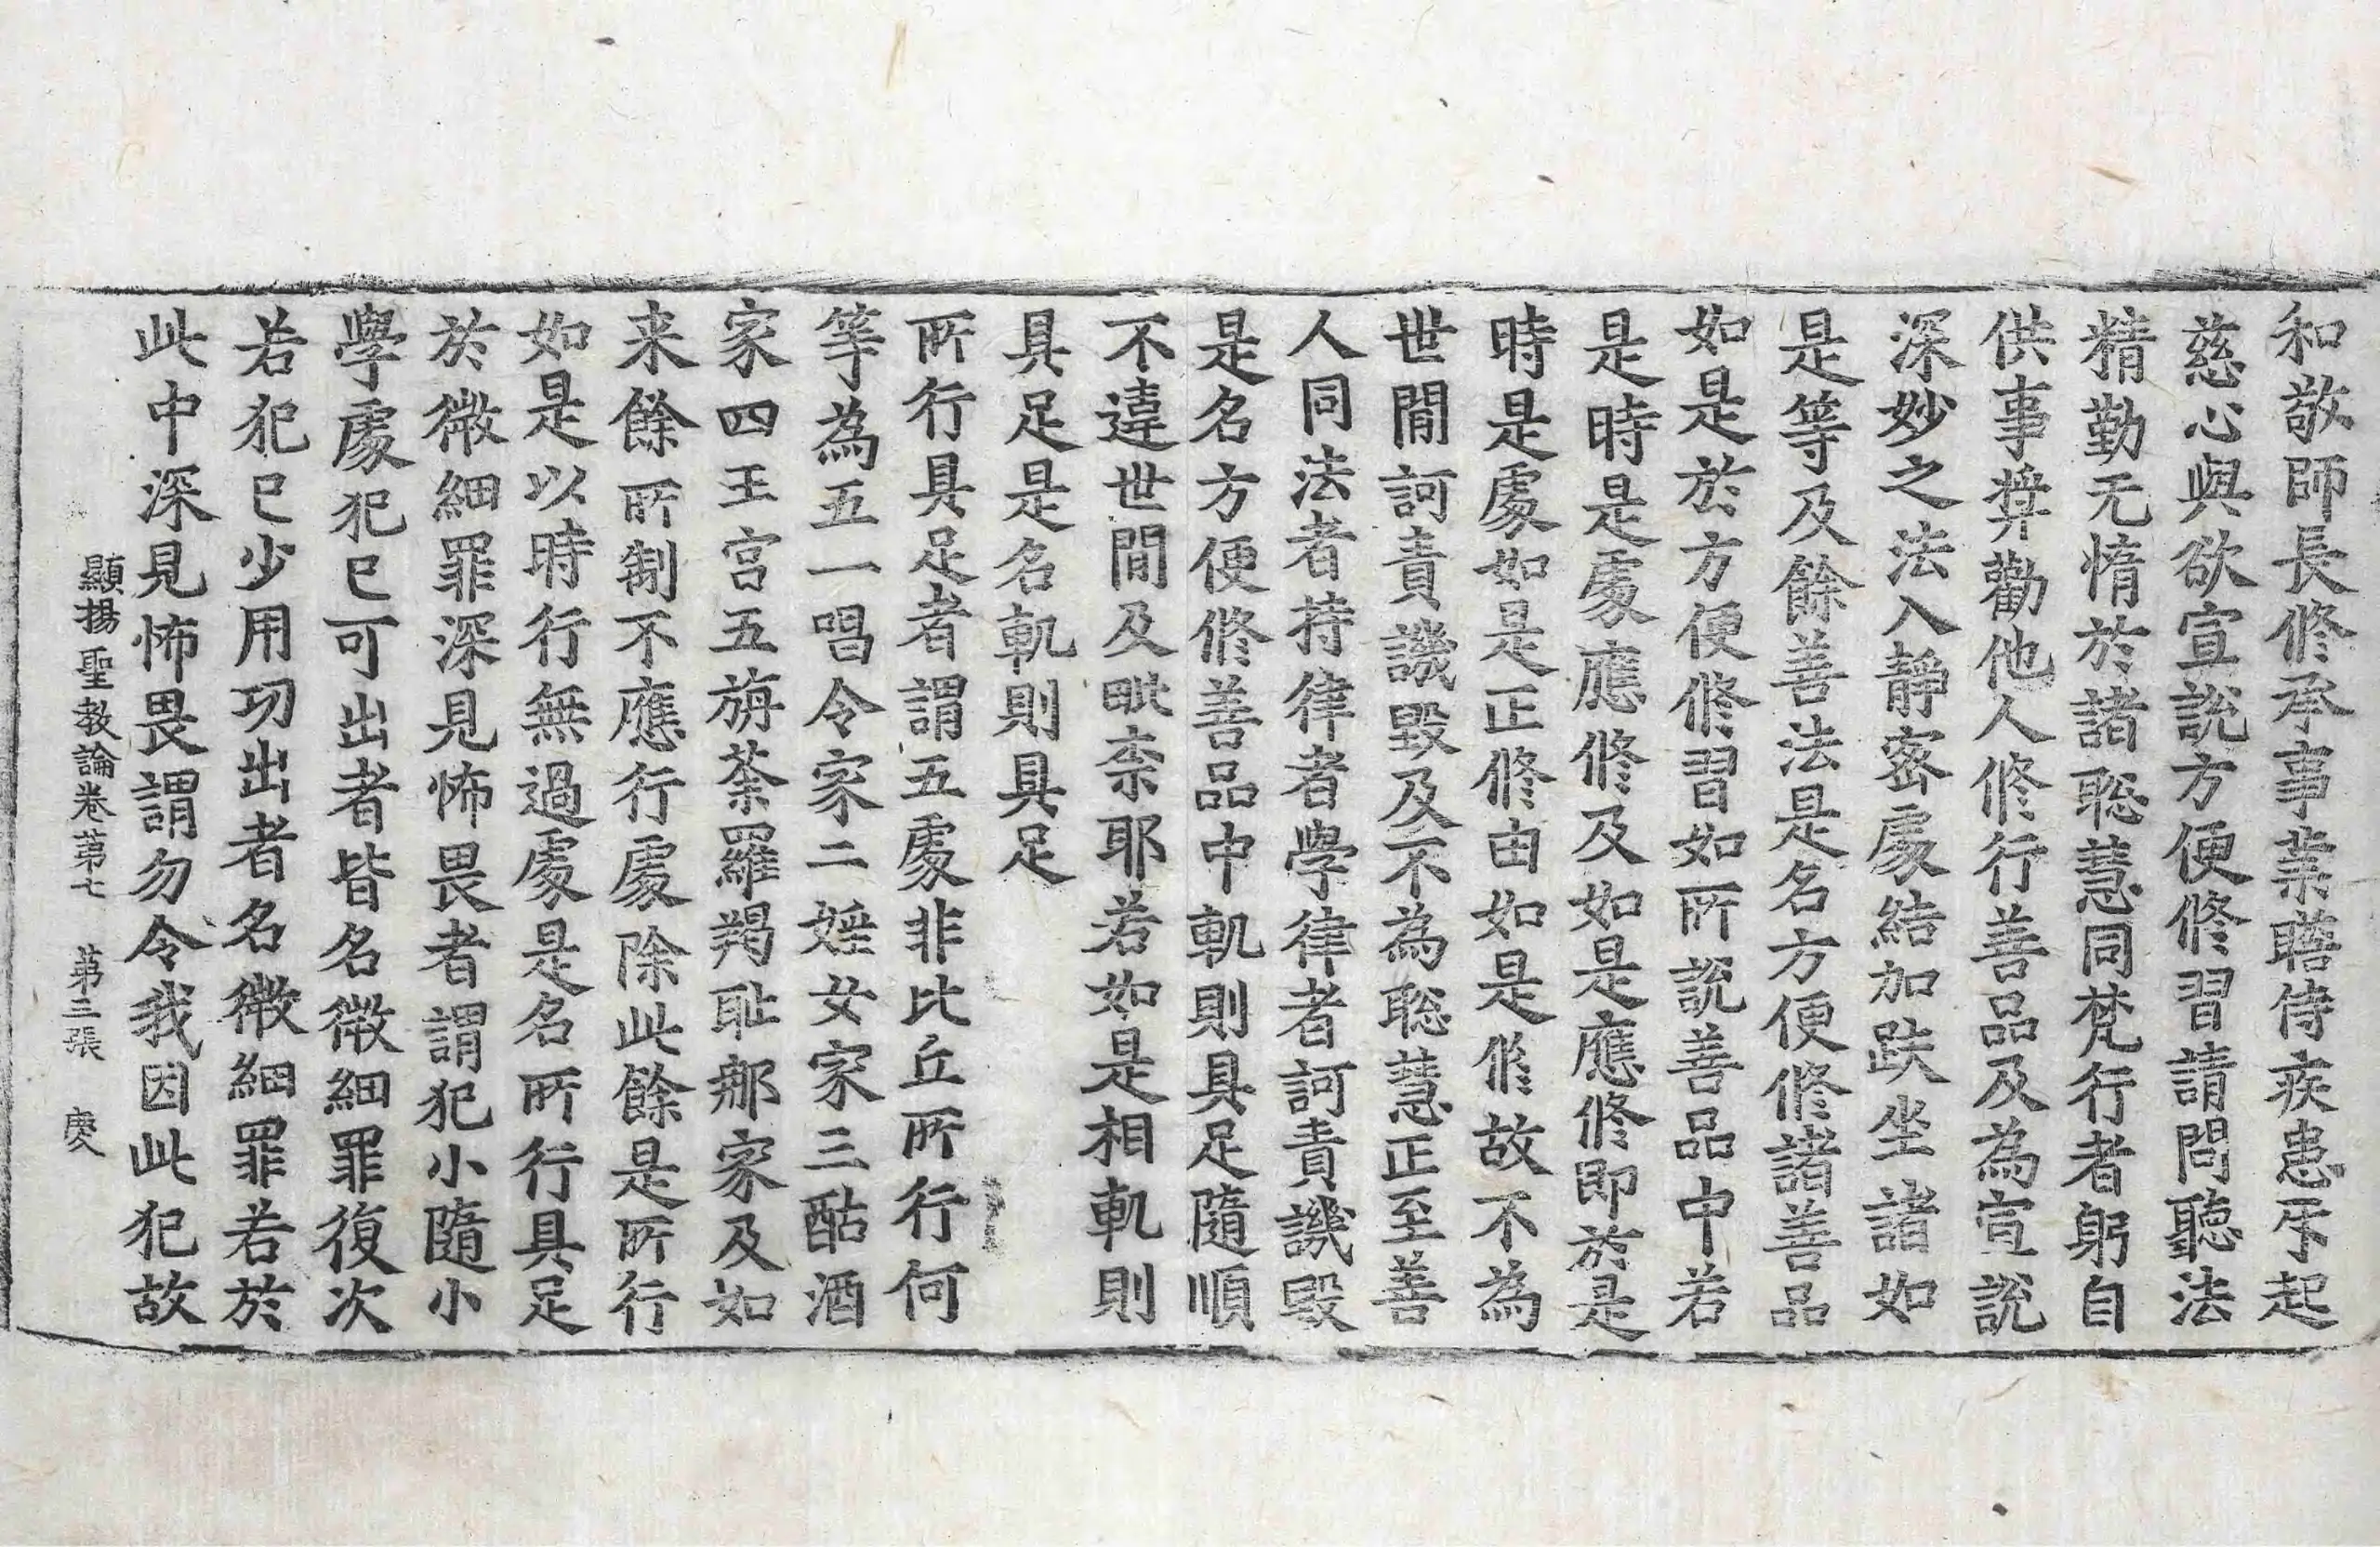 和敬師長修承事業瞻侍疾患汞起
慈心與欲宣說方便修習請問聽法
精勤无惰於諸聡慧同梵行者躬自
供事奬勸他人修行善品及為宣說
深妙之法入靜宻處結加趺坐諸如
是等及餘善法是名方便修諸善品
如是於方便修習如所說善品中若
是時是處應修及如是應修即於是
時是處如是正修由如是修故不為
世閒訶責譏毀及不為聡慧正至善
人同法者持律者學律者訶責譏毀
是名方便修善品中軌則具足隨順
不違世間及毗柰耶若如是相軌則
具足是名軌則具足
所行具足者謂五處非比丘所行何
等為五一唱令家二婬女家三酤酒
家四王宮五旃荼羅羯耻那家及如
来餘所制不應行處除此餘是所行
如是以時行無過處是名所行具足
於微細罪深見怖畏者謂犯小隨小
學處犯已可出者皆名微細罪復次
若犯已少用功出者名微細罪若於
此中深見怖畏謂勿令我因此犯故
顯揚聖教論卷苐七　苐三張　慶